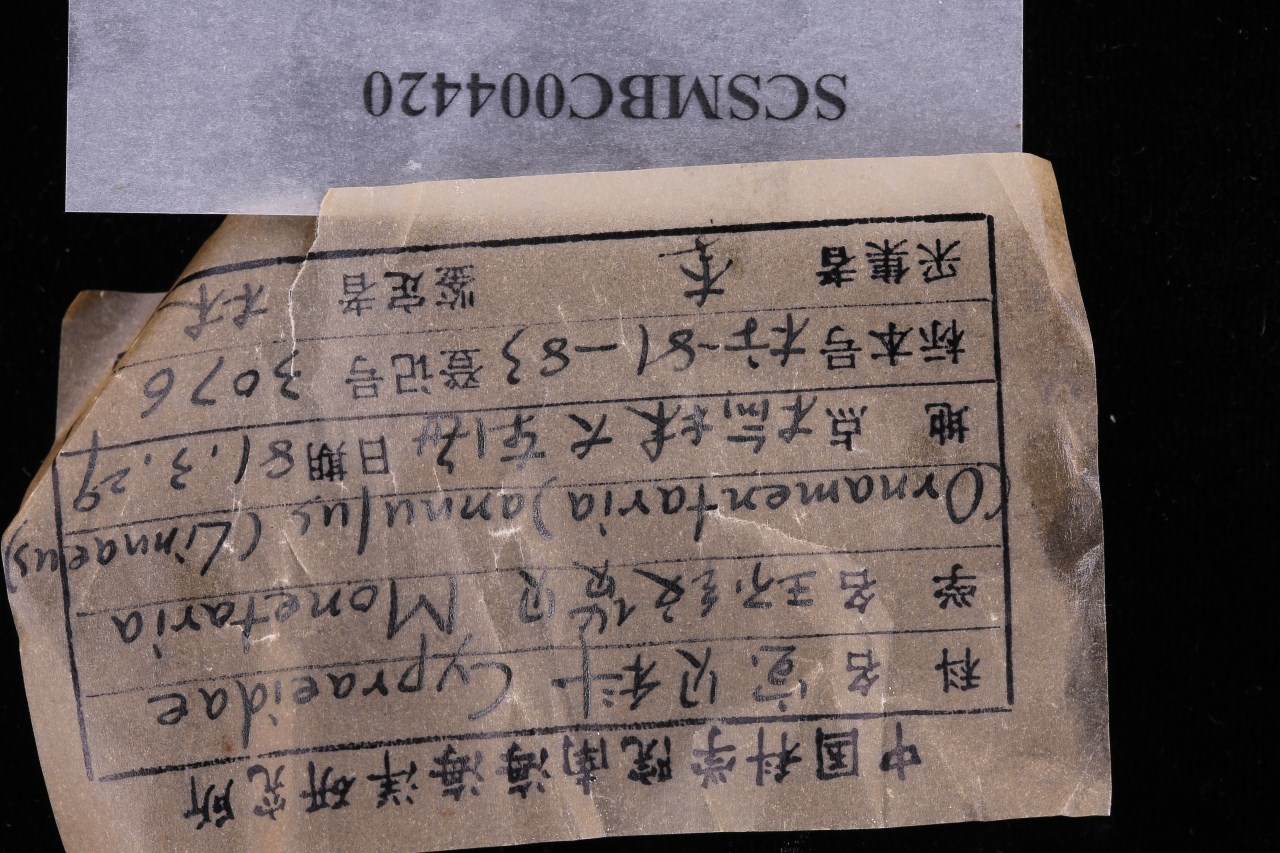 中国科学院南海海洋研究所
科 名 宝贝科 Cypraeidae
学 名 环纹货贝 Monetaria
(Ornamentaria) annulus (Linnaeus)
地 点 日期 81.3.29
标本号 81-83 登记号 3076
采集者 李 鉴定者 林
SCSMBC004420